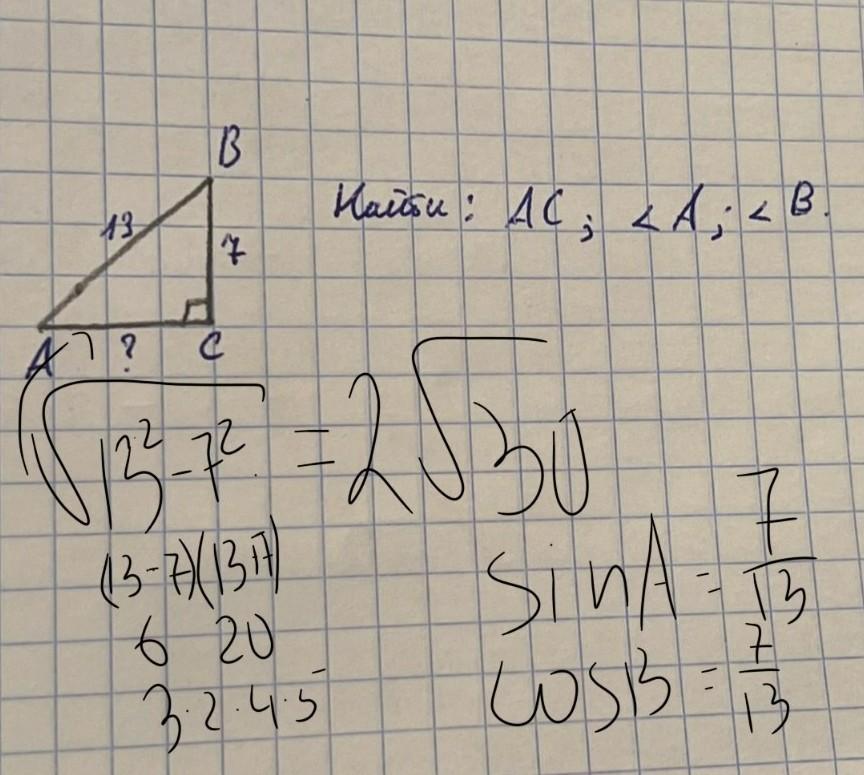 B
13
7
Найти: AC; <A; <B.
A ? C
√13²-7² = 2√30
(13-7)(13+7)
6 20
3·2·4·5
sin A = 7/13
cos B = 7/13